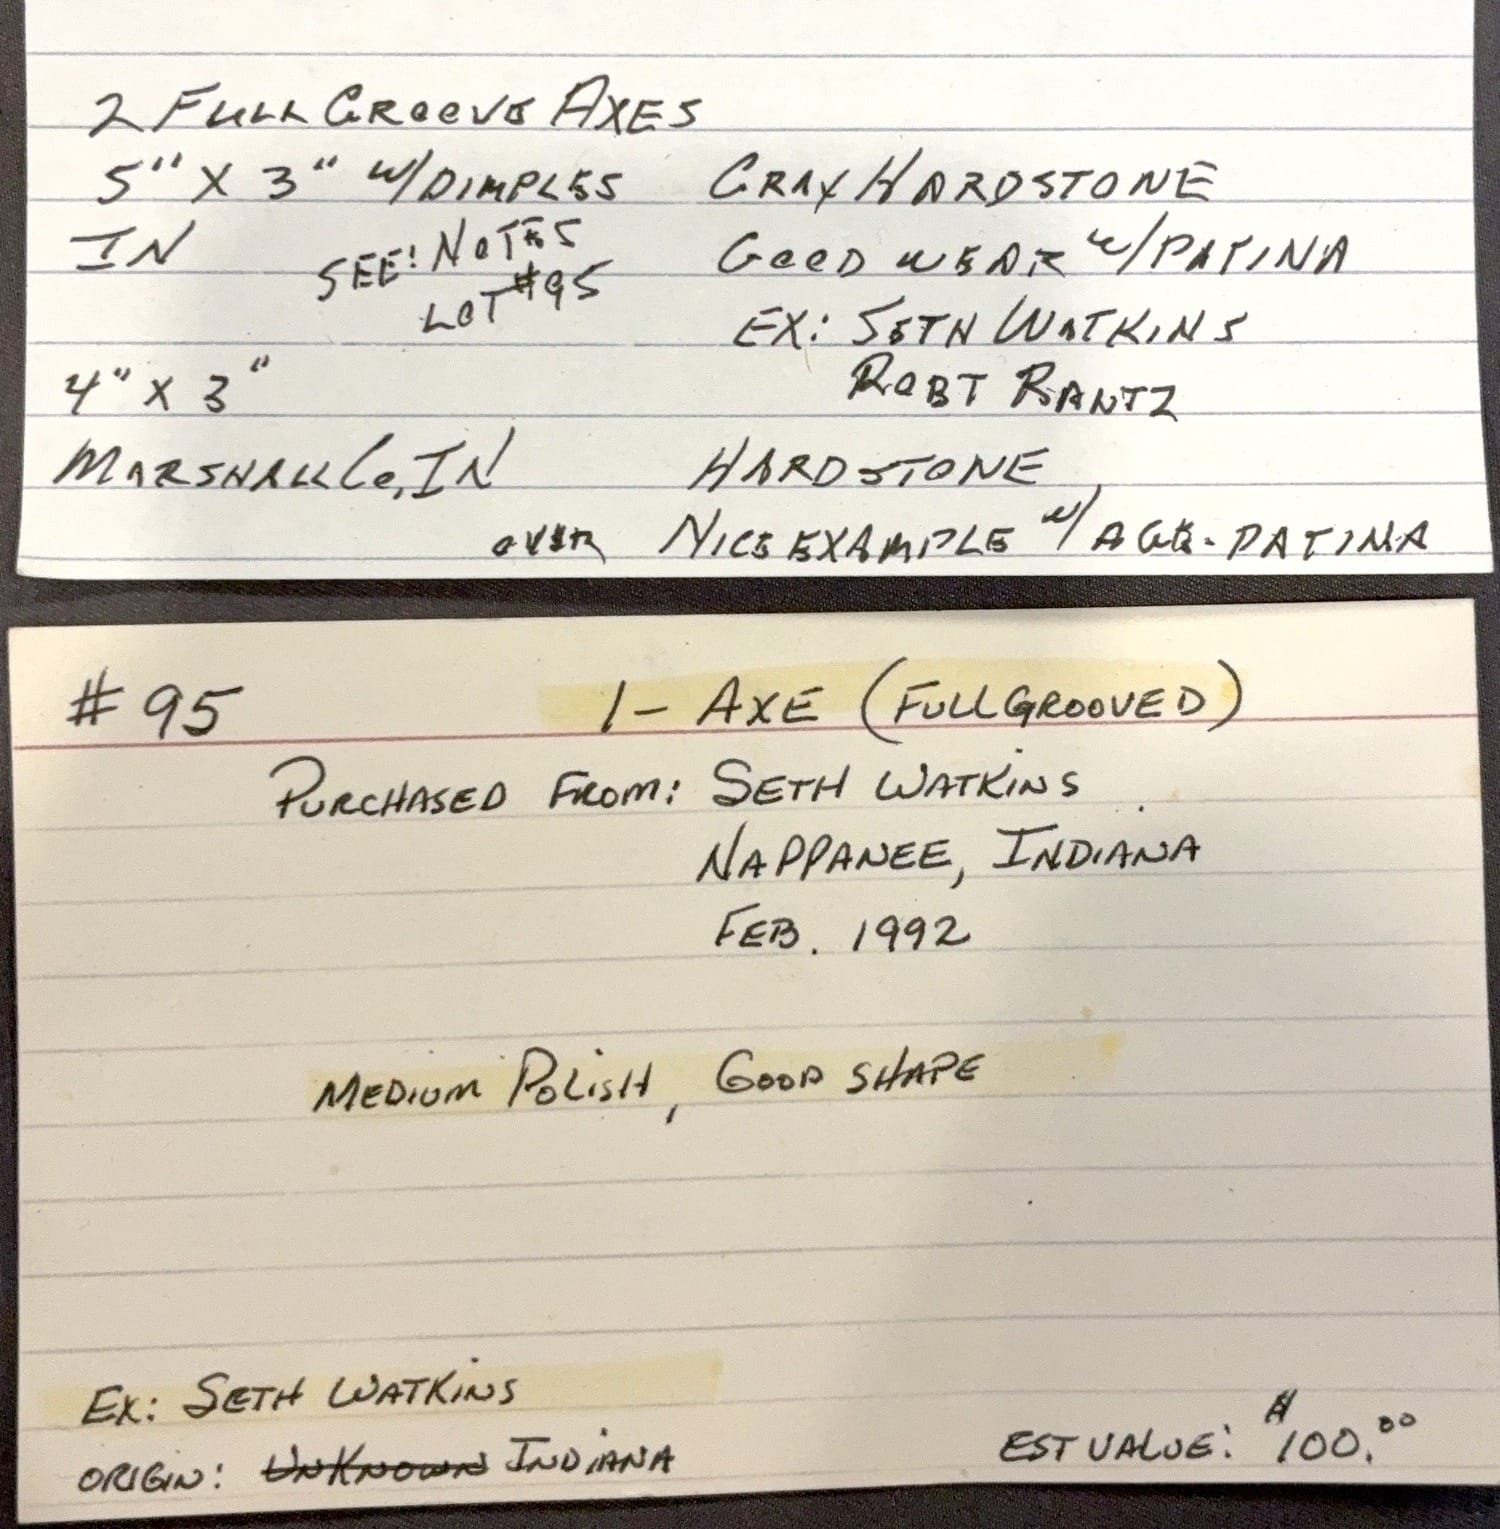 2 FULL GROOVE AXES
5" X 3" W/DIMPLES GRAY HARDSTONE
IN SEE! NOTES GOOD WEAR W/PATINA
LOT #95
EX: SETH WATKINS
4" X 3" ROBT RANTZ
MARSHALL Co, IN HARDSTONE
OVER NICE EXAMPLE W/ AGE-PATINA
# 95 1- AXE (FULL GROOVED)
PURCHASED FROM: SETH WATKINS
NAPPANEE, INDIANA
FEB. 1992
MEDIUM POLISH, GOOD SHAPE
EX: SETH WATKINS
ORIGIN: UNKNOWN INDIANA EST VALUE: $100.00